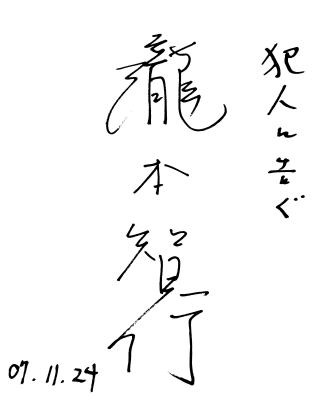 犯人に告ぐ
瀧本智行
07.11.24